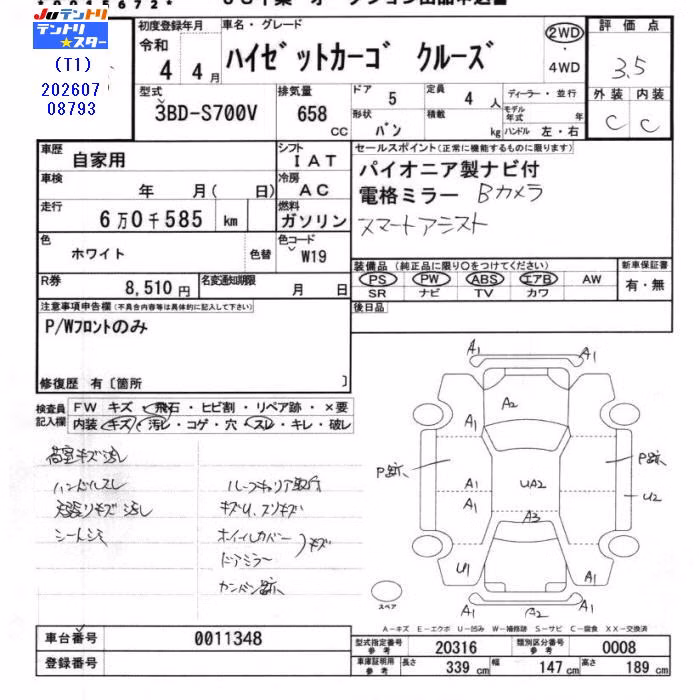 Juテントリ
テントリ★スター
(T1)
202607
08793
初度登録年月
令和
4 年 4 月
車名・グレード
ハイゼットカーゴ クルーズ
2WD
4WD
評価点
3.5
外装 内装
C C
型式
3BD-S700V
排気量
658 CC
ドア 5
形状 バン
定員 4 人
積載 kg
ディーラー・並行
モデル年式 年
ハンドル 左・右
車歴
自家用
シフト
IAT
車検
年 月( 日)
冷房
AC
走行
6万0千585 km
燃料
ガソリン
色
ホワイト
色替
色コード
W19
R券
8,510円
名変通知期限
月 日
セールスポイント(正常に機能するものに限ります)
パイオニア製ナビ付
電格ミラー Bカメラ
スマートアシスト
装備品(純正品に限り○をつけてください)
PS PW ABS エアB AW
SR ナビ TV カワ
新車保証書
有・無
後日品
注意事項申告欄(不具合内容等は具体的に記入して下さい)
P/Wフロントのみ
修復歴 有〔箇所 〕
検査員記入欄
FW キズ・飛石・ヒビ割・リペア跡・×要
内装・キズ・汚レ・コゲ・穴・スレ・キレ・破レ
荷室キズ汚れ
ハンドルスレ
天張リキズ汚し
シートシミ
ルーフキャリア取付
キズU、スリキズ
ホイールカバー
ドアミラー
キズ
カンバン跡
A1 A1
A1 A2 A1
P跡 P跡
A1 UA2 U2
A1 A3
U1 A1
A1 A2 A1
スペア
A-キズ E-エクボ U-凹み W-補修跡 S-サビ C-腐食 XX-交換済
車台番号
0011348
登録番号
型式指定番号 参考
20316
類別区分番号 参考
0008
車庫証明用 参考
長さ 339 cm
幅 147 cm
高さ 189 cm